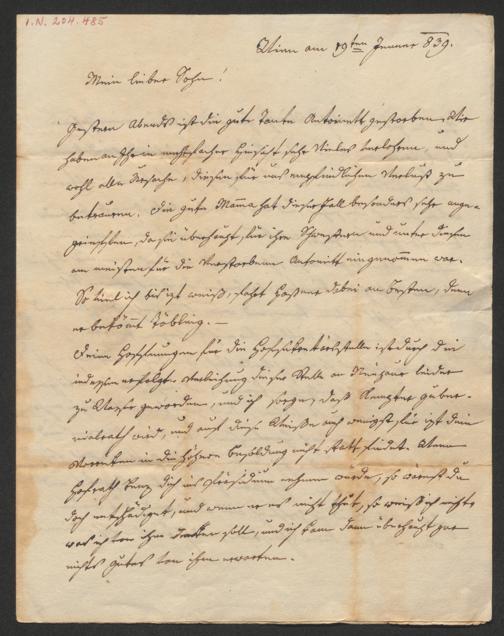 I.N. 204.485
Wien am 19ten Jenner 839.
Mein lieber Sohn!
Gestern Abends ist die gute Tante Antoinett gestorben. Wir
haben an Ihr in mehrfacher Hinsicht sehr Vieles verlohren, und
wohl alle Ursache, diesen für uns empfindlichen Verlust zu
betrauern. Die gute Mama hat dieser Fall besonders sehr ange-
griffen, da sie überhaupt für ihre Schwestern und unter diesen
am meisten für die Verstorbene Antoinett eingenommen war.
So viel ich bis izt weiß, fährt dabei am besten, denn
er bekömmt Döbling. —
Deine Hoffnungen für die Hofsekretärsstelle ist durch die
indessen erfolgte Verleihung dieser Stelle an leider
zu Wasser geworden, und ich sorge, daß Guber-
nialrath wird, und auf diese Weise auch wenigst für izt dein
Vorrücken in die höhere Besoldung nicht statt findet. Wenn
Hofrath dich ins Präsidium nehmen würde, so wärest du
doch entschädiget, und wenn er es nicht thut, so weiß ich nicht
was ich von ihm halten soll, und ich kann dann überhaupt gar
nichts gutes von ihm erwarten.